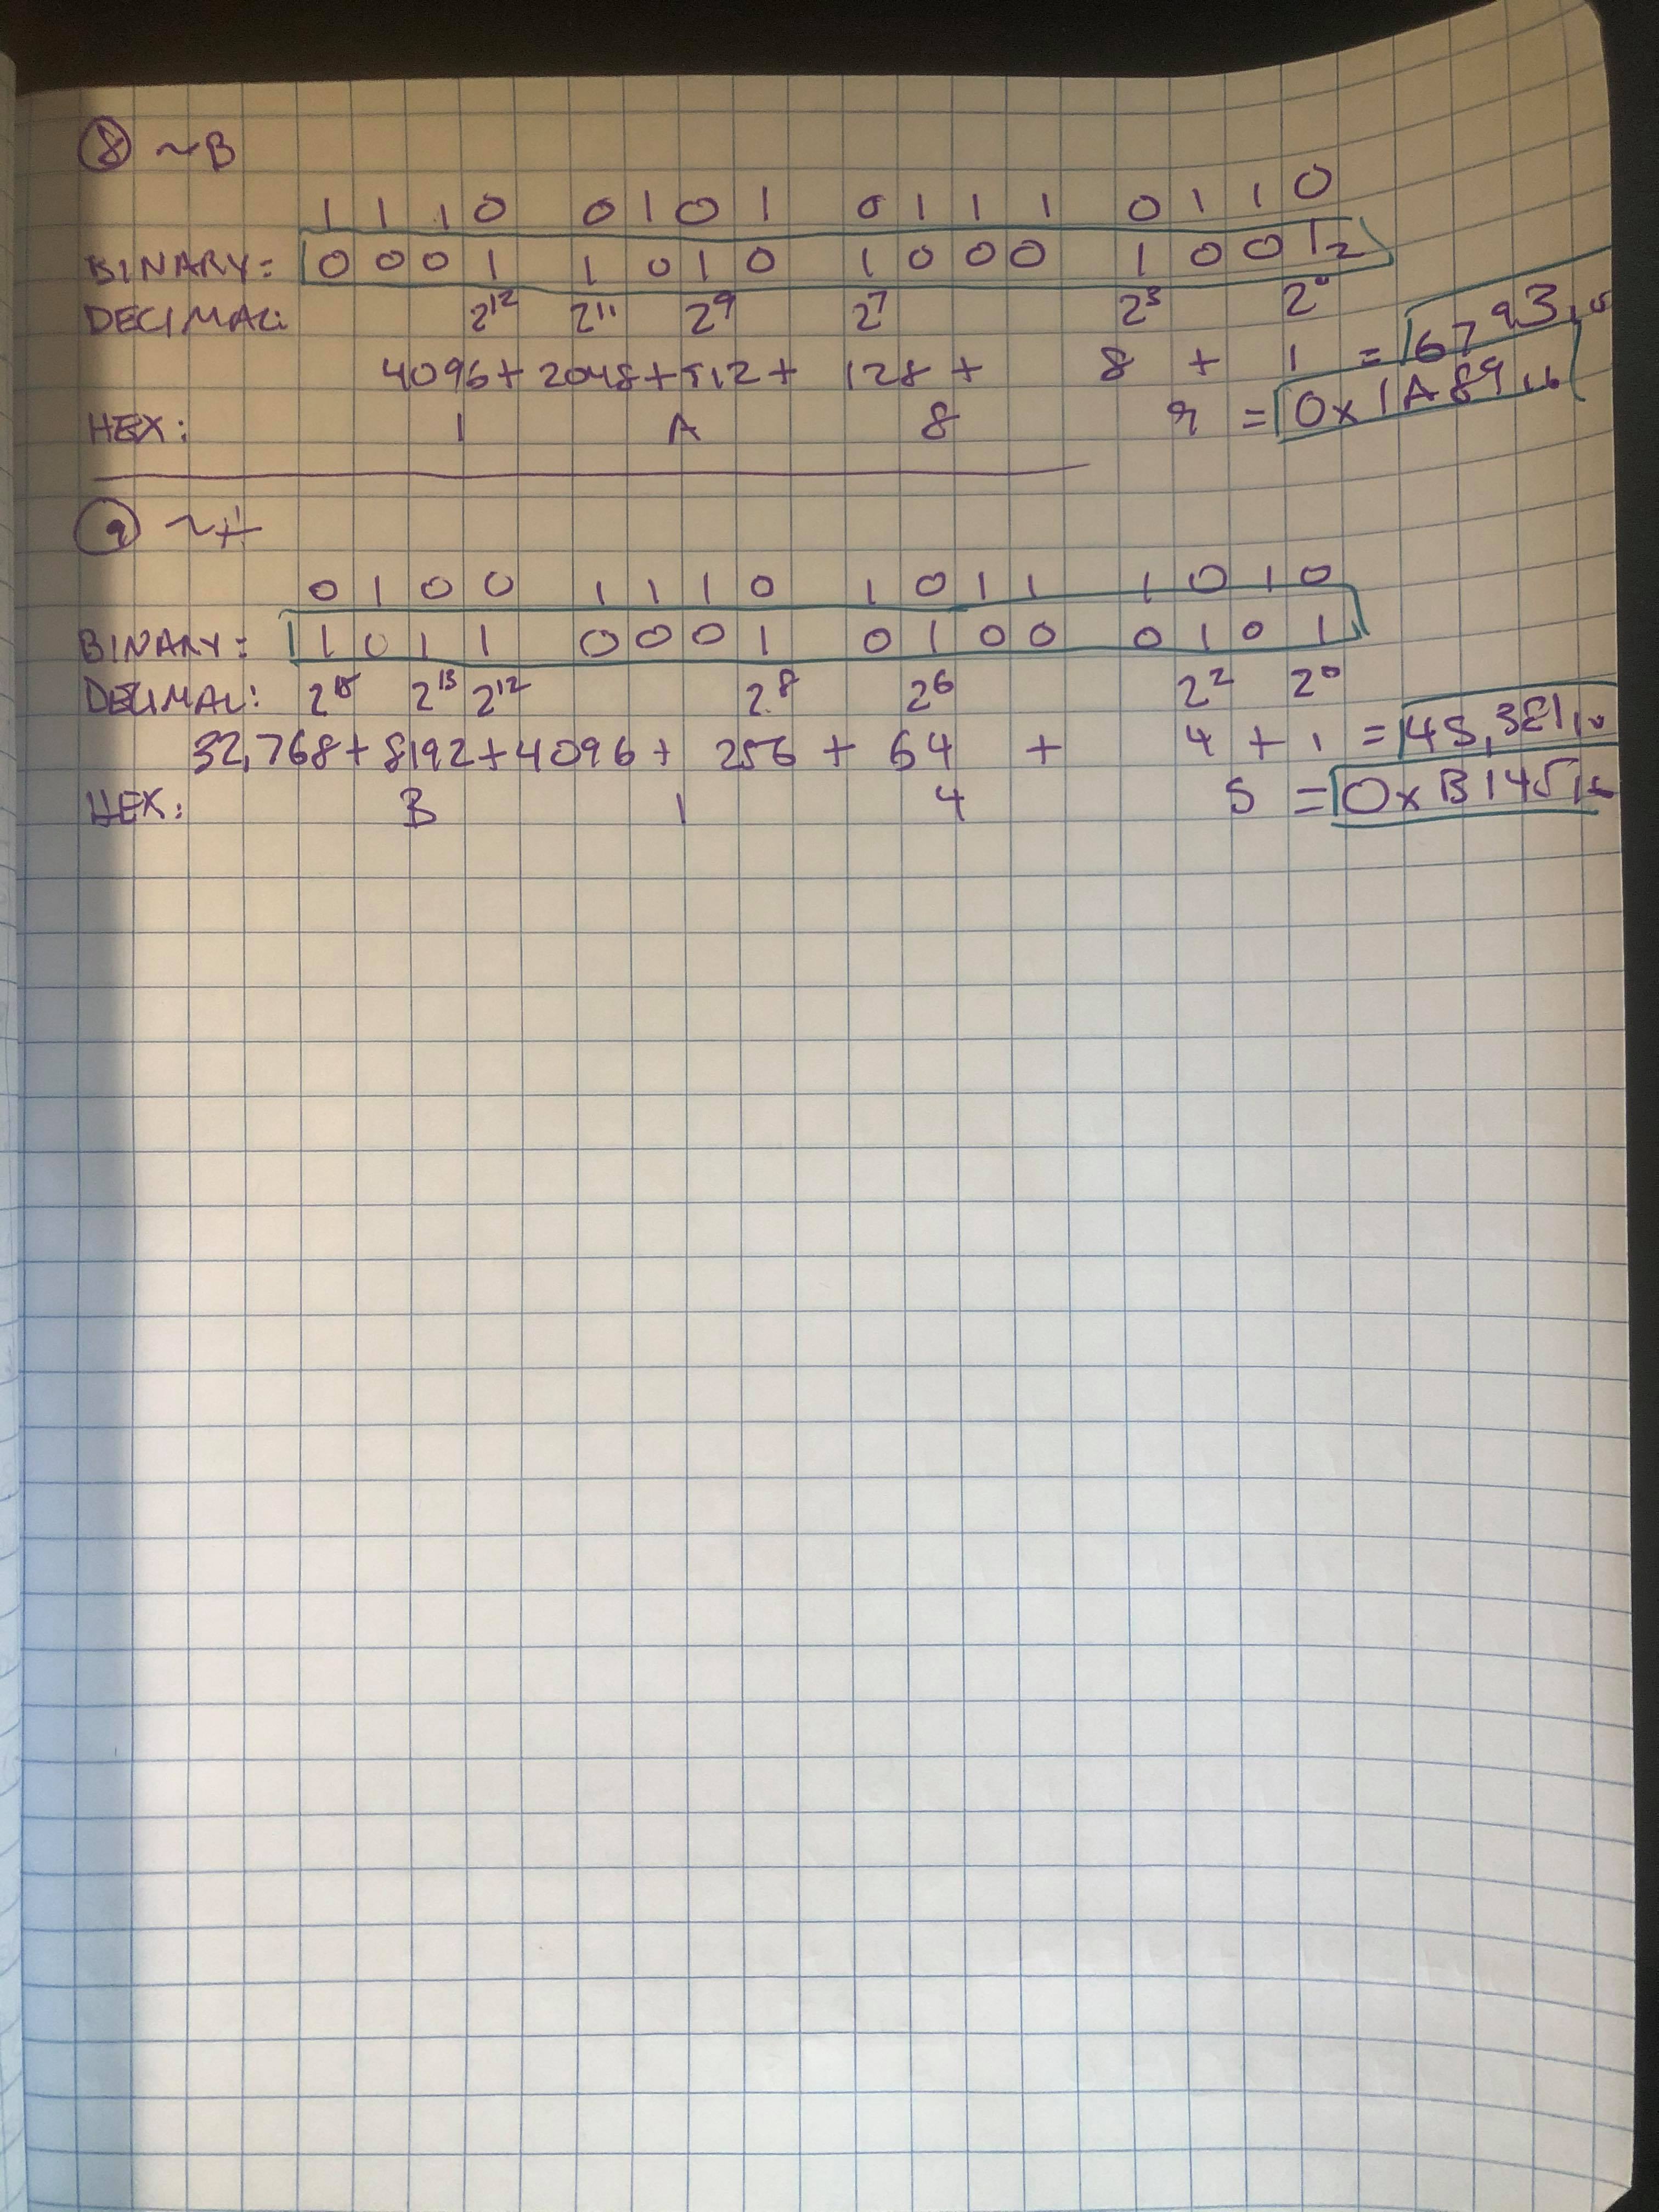 ⑧ ~B
1 1 1 0 0 1 0 1 0 1 1 1 0 1 1 0
BINARY: 0 0 0 1 1 0 1 0 1 0 0 0 1 0 0 1₂
DECIMAL: 2¹² 2¹¹ 2⁹ 2⁷ 2³ 2⁰
4096 + 2048 + 512 + 128 + 8 + 1 = 6793₁₀
HEX: 1 A 8 9 = 0x1A89₁₆
⑨ ~A
0 1 0 0 1 1 1 0 1 0 1 1 1 0 1 0
BINARY: 1 0 1 1 0 0 0 1 0 1 0 0 0 1 0 1
DECIMAL: 2¹⁵ 2¹³ 2¹² 2⁸ 2⁶ 2² 2⁰
32,768 + 8192 + 4096 + 256 + 64 + 4 + 1 = 45,381₁₀
HEX: B 1 4 5 = 0xB145₁₆